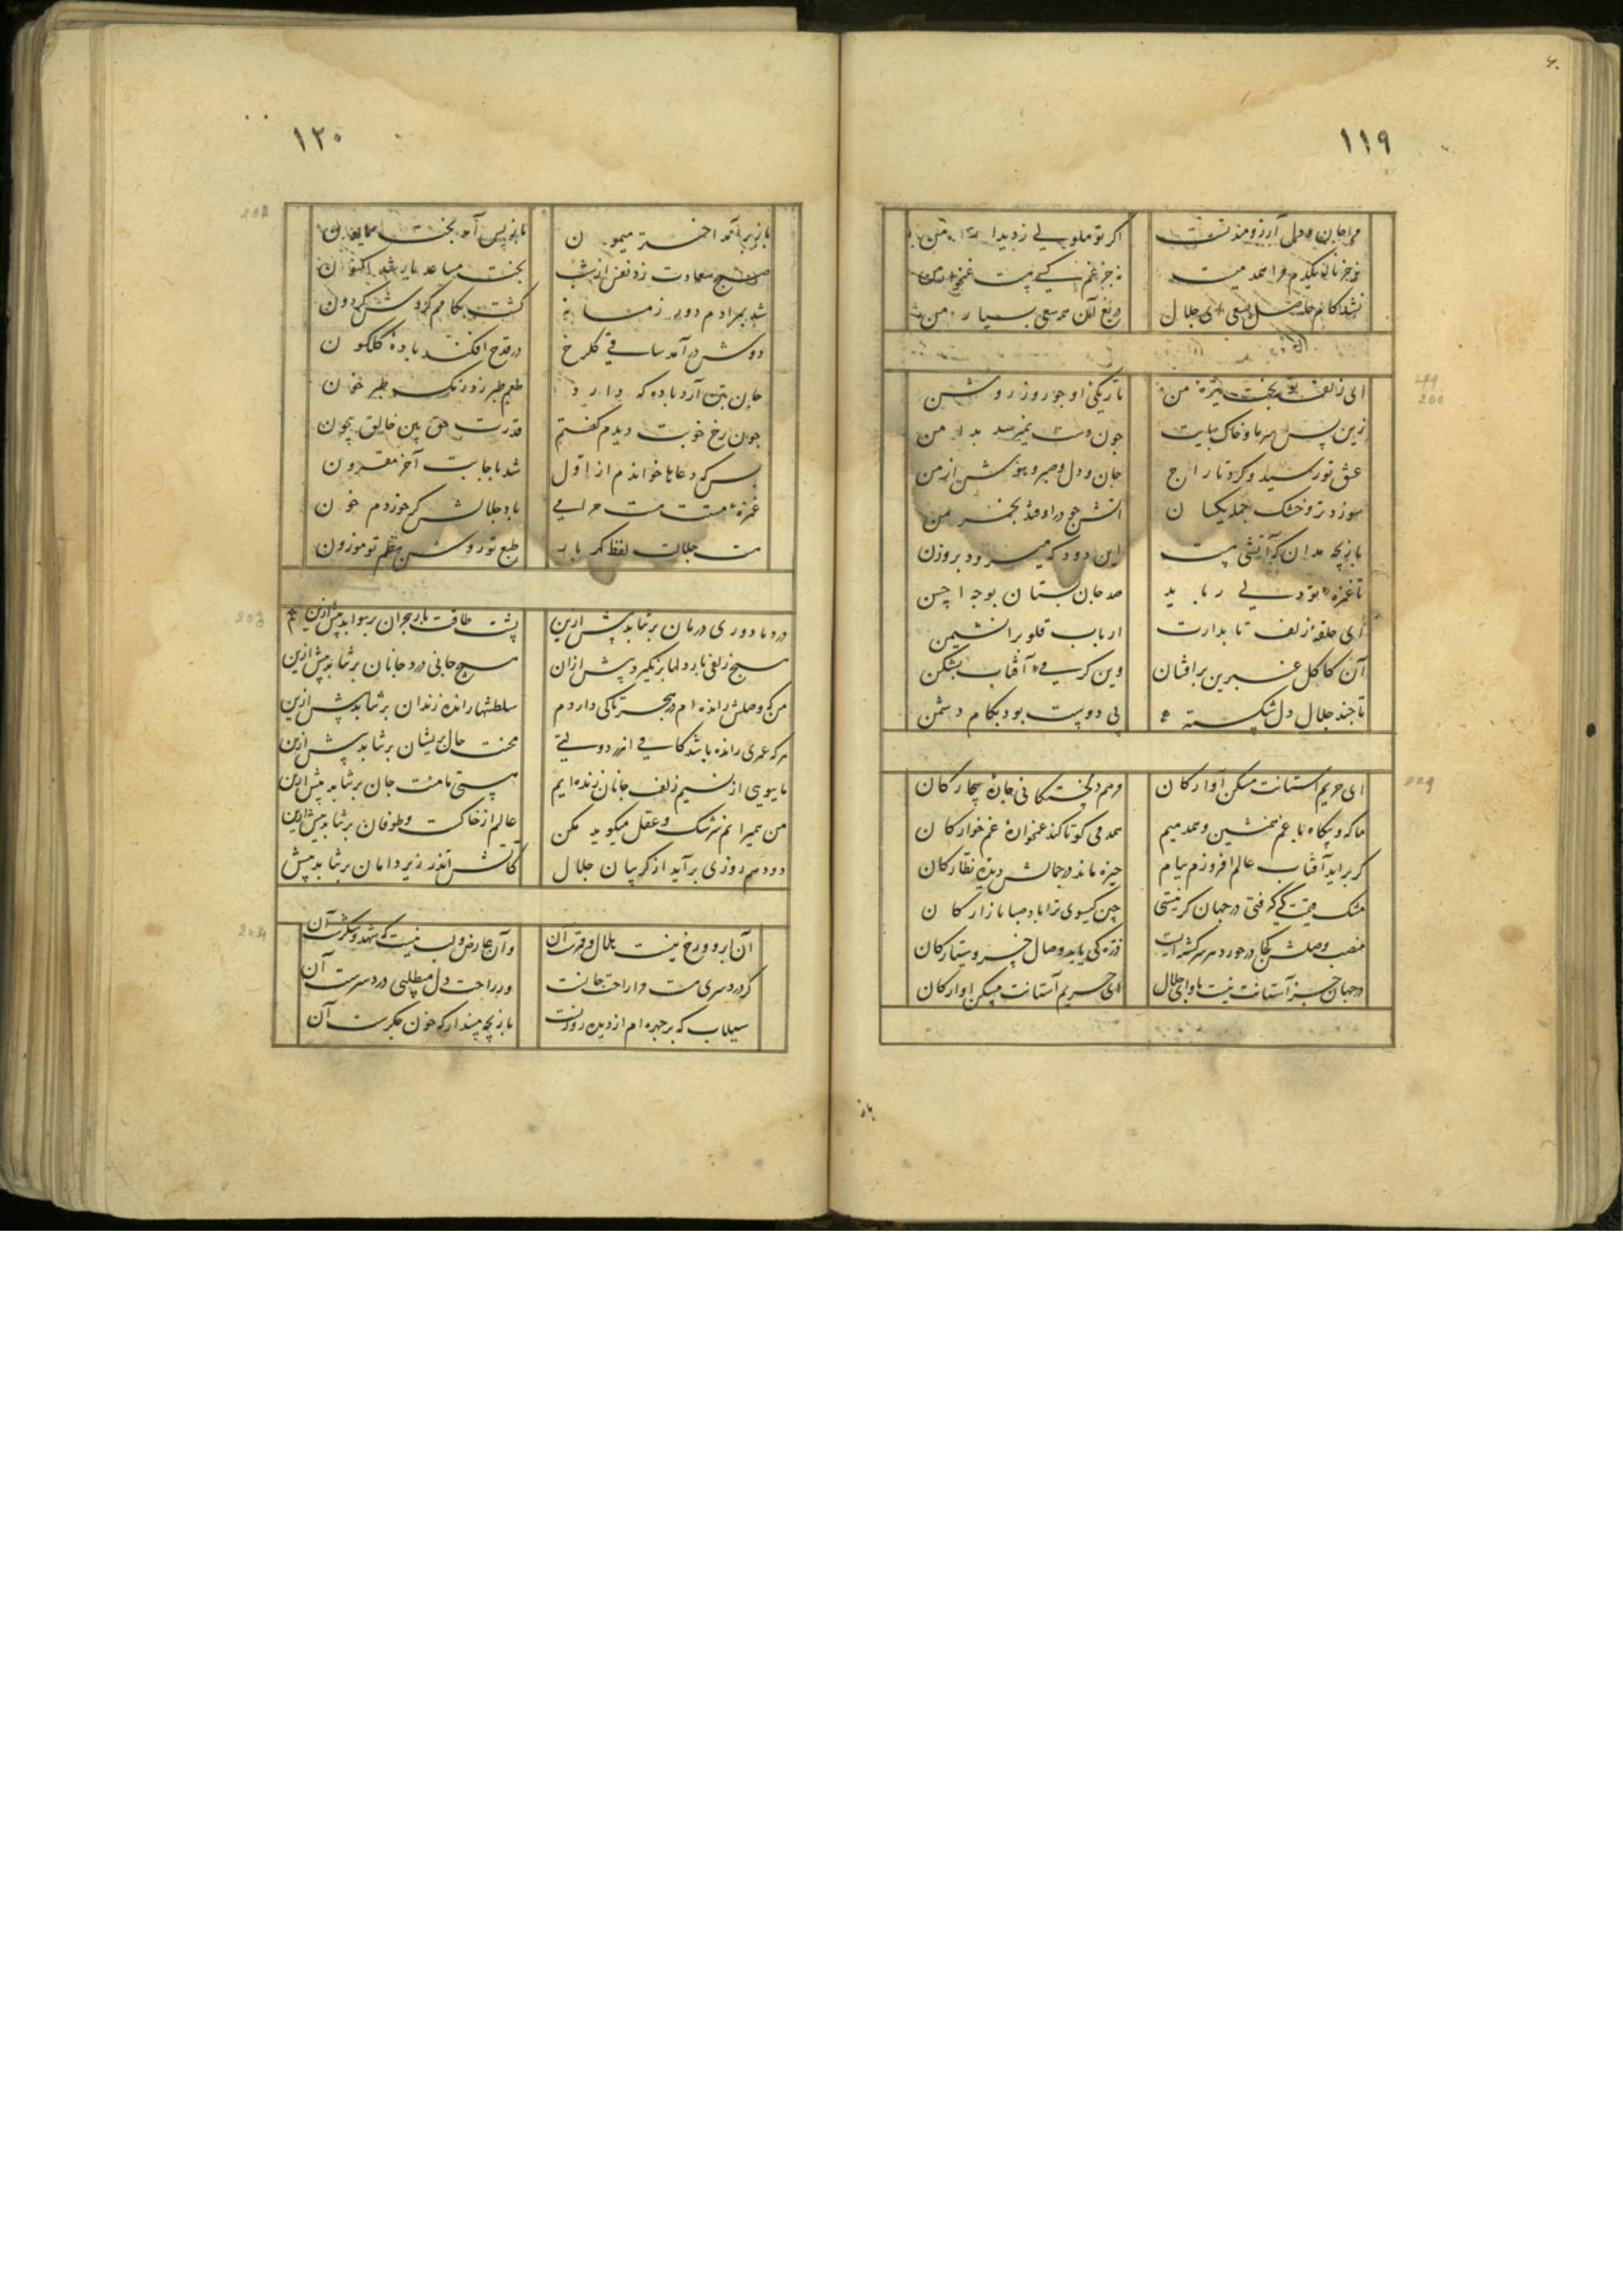 ۱۱۹
مرا جان و دل آرزومند تست اگر تو ملولی ز دیدار من
بجز ناله یکدم مرا همدم نیست بجز غم کسی نیست غمخوار من
نشد کام حاصل بسعی ای جلال دریغ آن همه سعی بسیار من
ای زلف تو بخت تیره من تاریکی او چو روز روشن
زین پس سر ما و خاک پایت چون دست نمیرسد بدامن
عشق تو رسید و کرد تاراج جان و دل و صبر و هوش از من
سوزد تر و خشک جمله یکسان آتش چو در اوفتد بخرمن
بازیچه مدان که آتشی هست این دود که میرود بروزن
تا غمزه تو دلی رباید صد جان بستان بوجه احسن
ای حلقه زلف تابدارت ارباب قلوب را نشیمن
آن کاکل عنبرین برافشان وین کرسی آفتاب بشکن
تا چند جلال دل شکسته بی دوست بود بکام دشمن
ای حریم آستانت مسکن آوارکان مرهم دلخستکانی چاره بیچارکان
ما که و بیکاه با غم همنشین و همدمیم همدمی کو تا کند غمخوارهٔ غمخوارکان
کر براید آفتاب عالم افروزم ببام خیره ماند در جمالش دیده نظارکان
مشک قیمت کی کرفتی در جهان کر نیستی چین کیسوی ترا باد صبا بازارکان
منصب وصلش کجا در خورد هر سرکشته ایست ذره کی یابد وصال خسرو سیارکان
در جهان جز آستانت نیست ماوای جلال ای حریم آستانت مسکن آوارکان
۱۲۰
باز برآمد اختر میمون باز پس آمد بخت همایون
صبح سعادت زد نفس از شب بخت مساعد یار شد اکنون
شد بمرادم دور زمانه کشت بکامم کردش کردون
دوش درآمد ساقی کلرخ در قدح افکند باده کلکون
جان بتن آرد باده که دارد طعم طبرزد رنک طبرخون
چون رخ خوبت دیدم کفتم قدرت حق بین خالق بیچون
بس که دعاها خواندم از اول شد باجابت آخر مقرون
غمزه مستت مست حرامی باد حلالش کر خوردم خون
هست جلالت لفظ کهر بار طبع تو روشن نظم تو موزون
درد ما دوری درمان برنتابد بیش ازین پشت طاقت بار هجران برنتابد بیش ازین
هیچ زلفی بار دلها برنکیرد بیش ازان هیچ جانی درد جانان برنتابد بیش ازین
من که وصلش رانده ام در هجر تا کی دارد م سلطنتها رانده زندان برنتابد بیش ازین
هر که عمری رانده باشد کامی اندر دولتی محنت حال پریشان برنتابد بیش ازین
ما ببویی از نسیم زلف جانان زنده ایم هستی ما منت جان برنتابد بیش ازین
من همیرانم سرشک و عقل میکوید مکن عالم از خاکست و طوفان برنتابد بیش ازین
دود هم روزی برآید از کریبان جلال کاتش اندر زیر دامان برنتابد بیش
آن ابرو و رخ نیست هلال و قمرست آن وآن عارض و لب نیست که شهد و شکرست آن
کر دردسری هست مرا راحت جانست ور راحت دل میطلبی دردسرست آن
سیلاب که بر چهره ام از دیده روانست بازیچه مپندار که خون جکرست آن